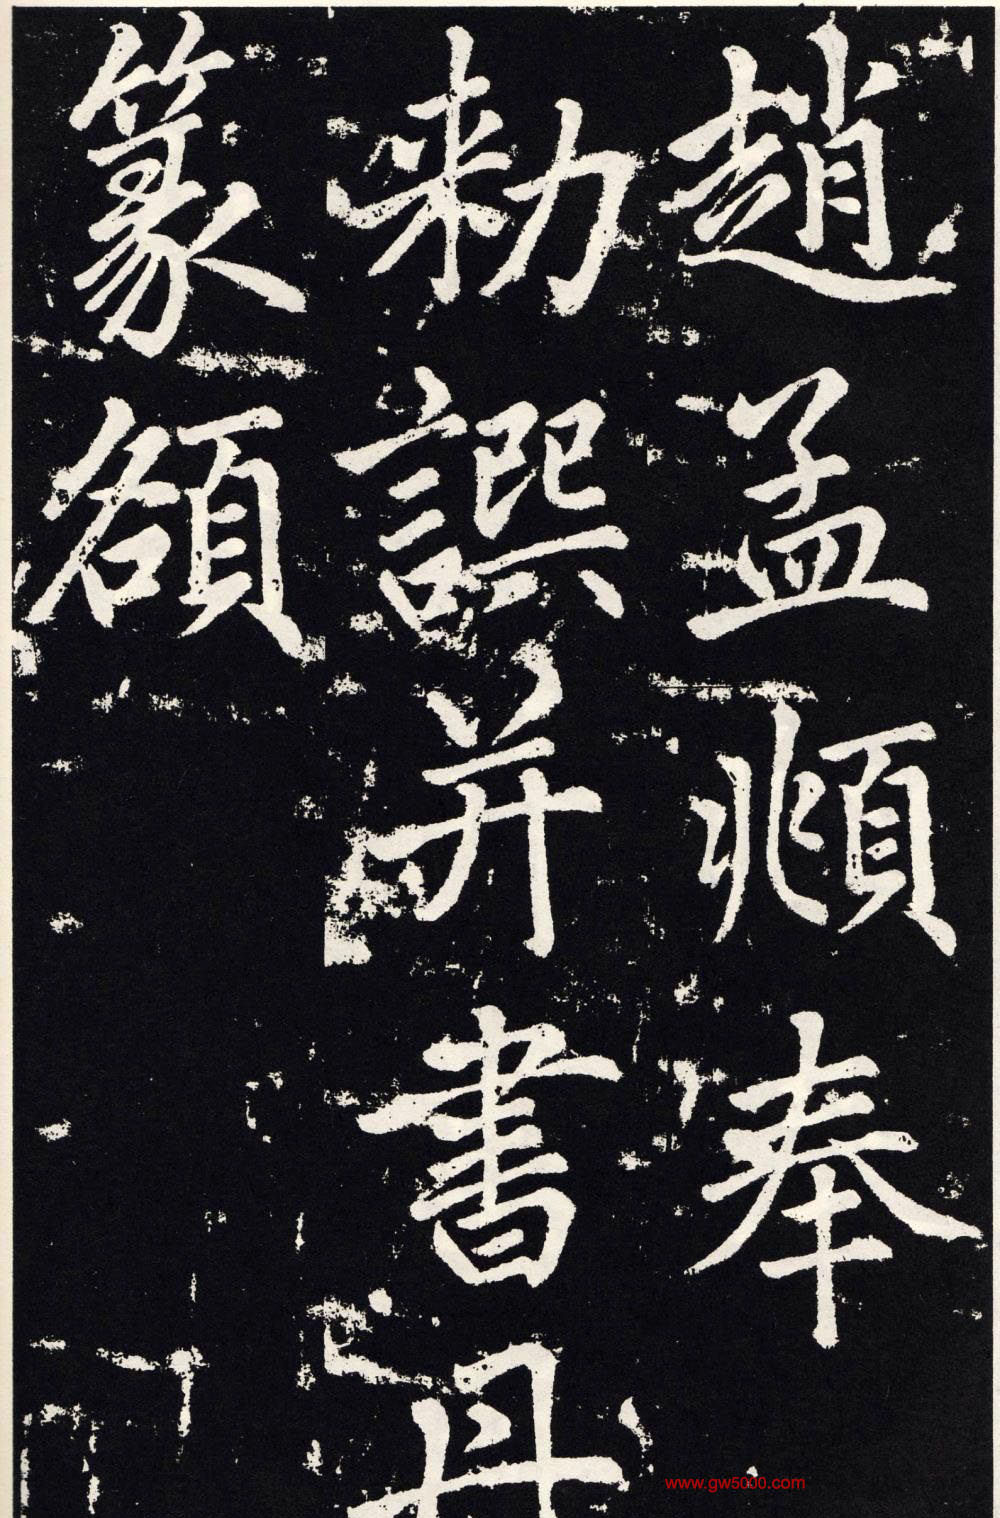 趙孟頫奉
勑譔并書丹
篆額
www.gw5000.com